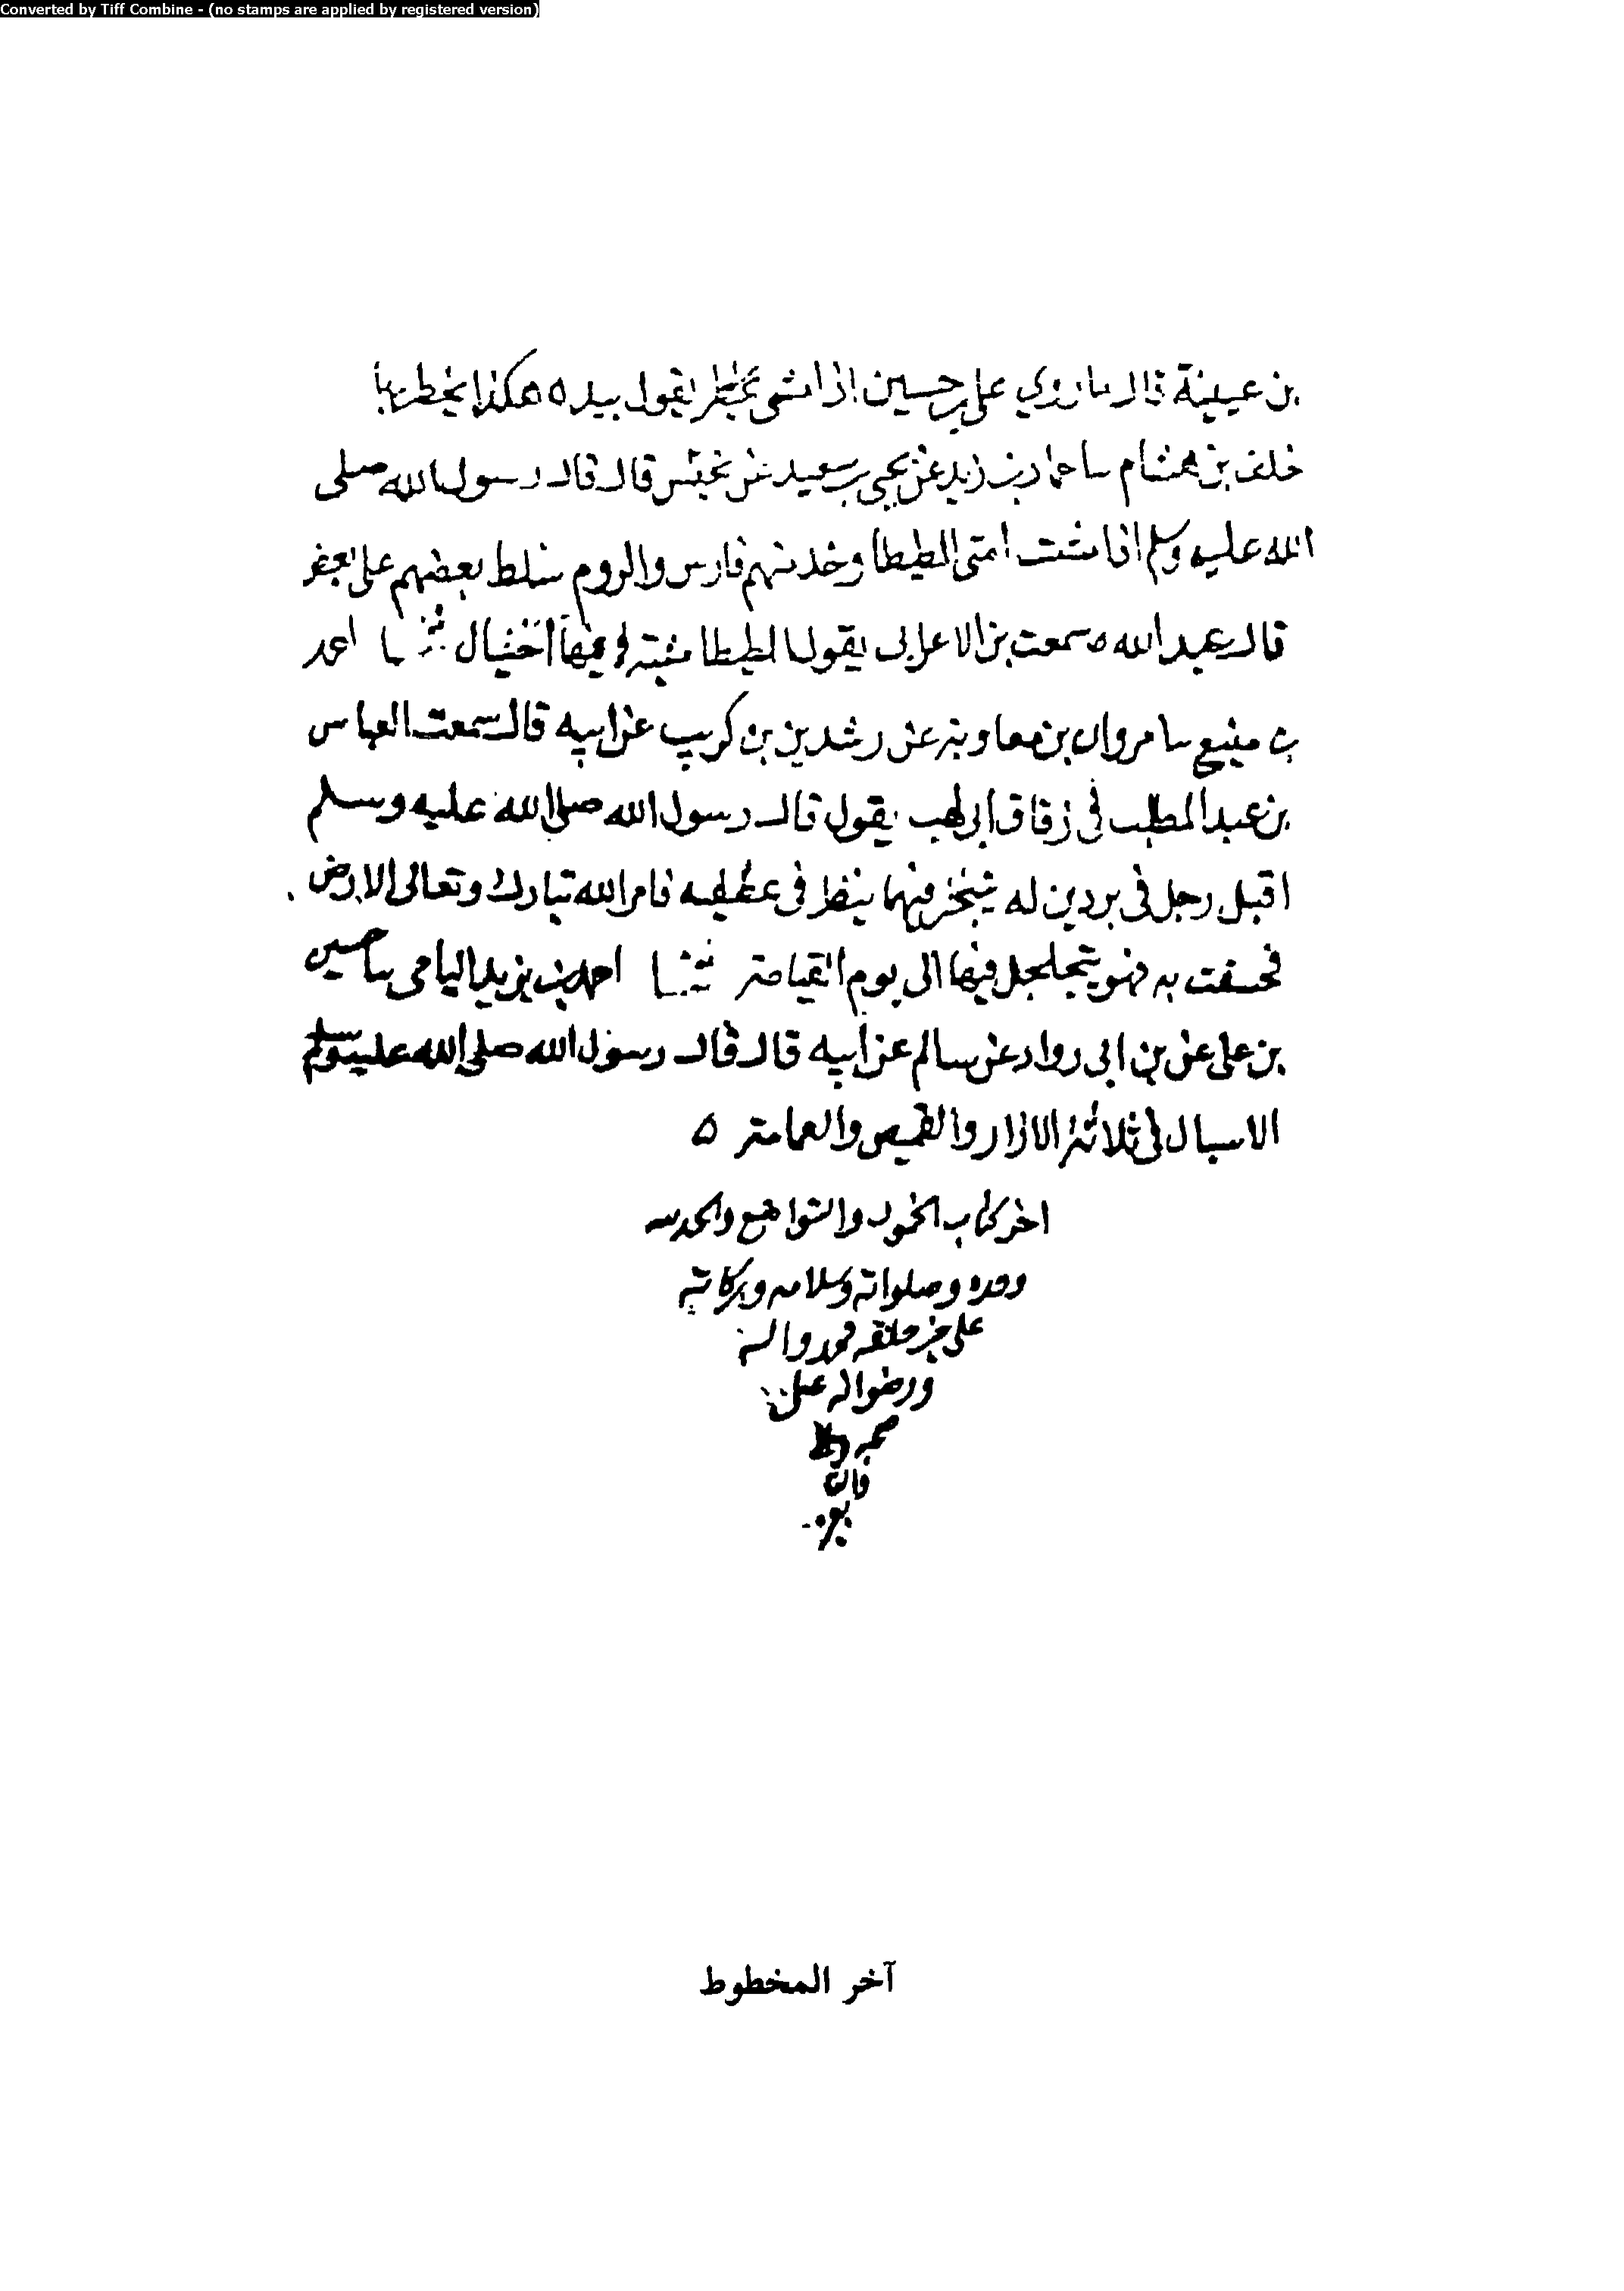 Converted by Tiff Combine - (no stamps are applied by registered version)
بن عيينة قال ما روي علي بن حسين اذا مشى يخطر يقول بيده هكذا يخطر بها
خلف بن هشام سا حماد بن زيد عن يحيى بن سعيد عن يحنس قال قال رسول الله صلى
الله عليه وسلم اذا مشت امتي المطيطا وخدمتهم فارس والروم سلط بعضهم على بعض
قال عبد الله سمعت بن الاعرابي يقول المطيطا مشية فيها اختيال ثنا احمد
بن منيع سا مروان بن معاوية عن رشدين بن كريب عن ابيه قال سمعت العباس
بن عبد المطلب في زقاق ابي لهب يقول قال رسول الله صلى الله عليه وسلم
اقبل رجل في بردين له يتبختر فيهما ينظر في عطفيه فامر الله تبارك وتعالى الارض
فخسفت به فهو يتجلجل فيها الى يوم القيامة ثنا احمد بن يزيد اليامي سا حسين
بن علي عن بن ابي رواد عن سالم عن ابيه قال قال رسول الله صلى الله عليه وسلم
الاسبال في ثلاثة الازار والقميص والعمامة ه
اخر كتاب الخمول والتواضع والحمد لله
وحده وصلواته وسلامه وبركاته
على خير خلقه محمد واله
ورضوانه على
آخر المخطوط